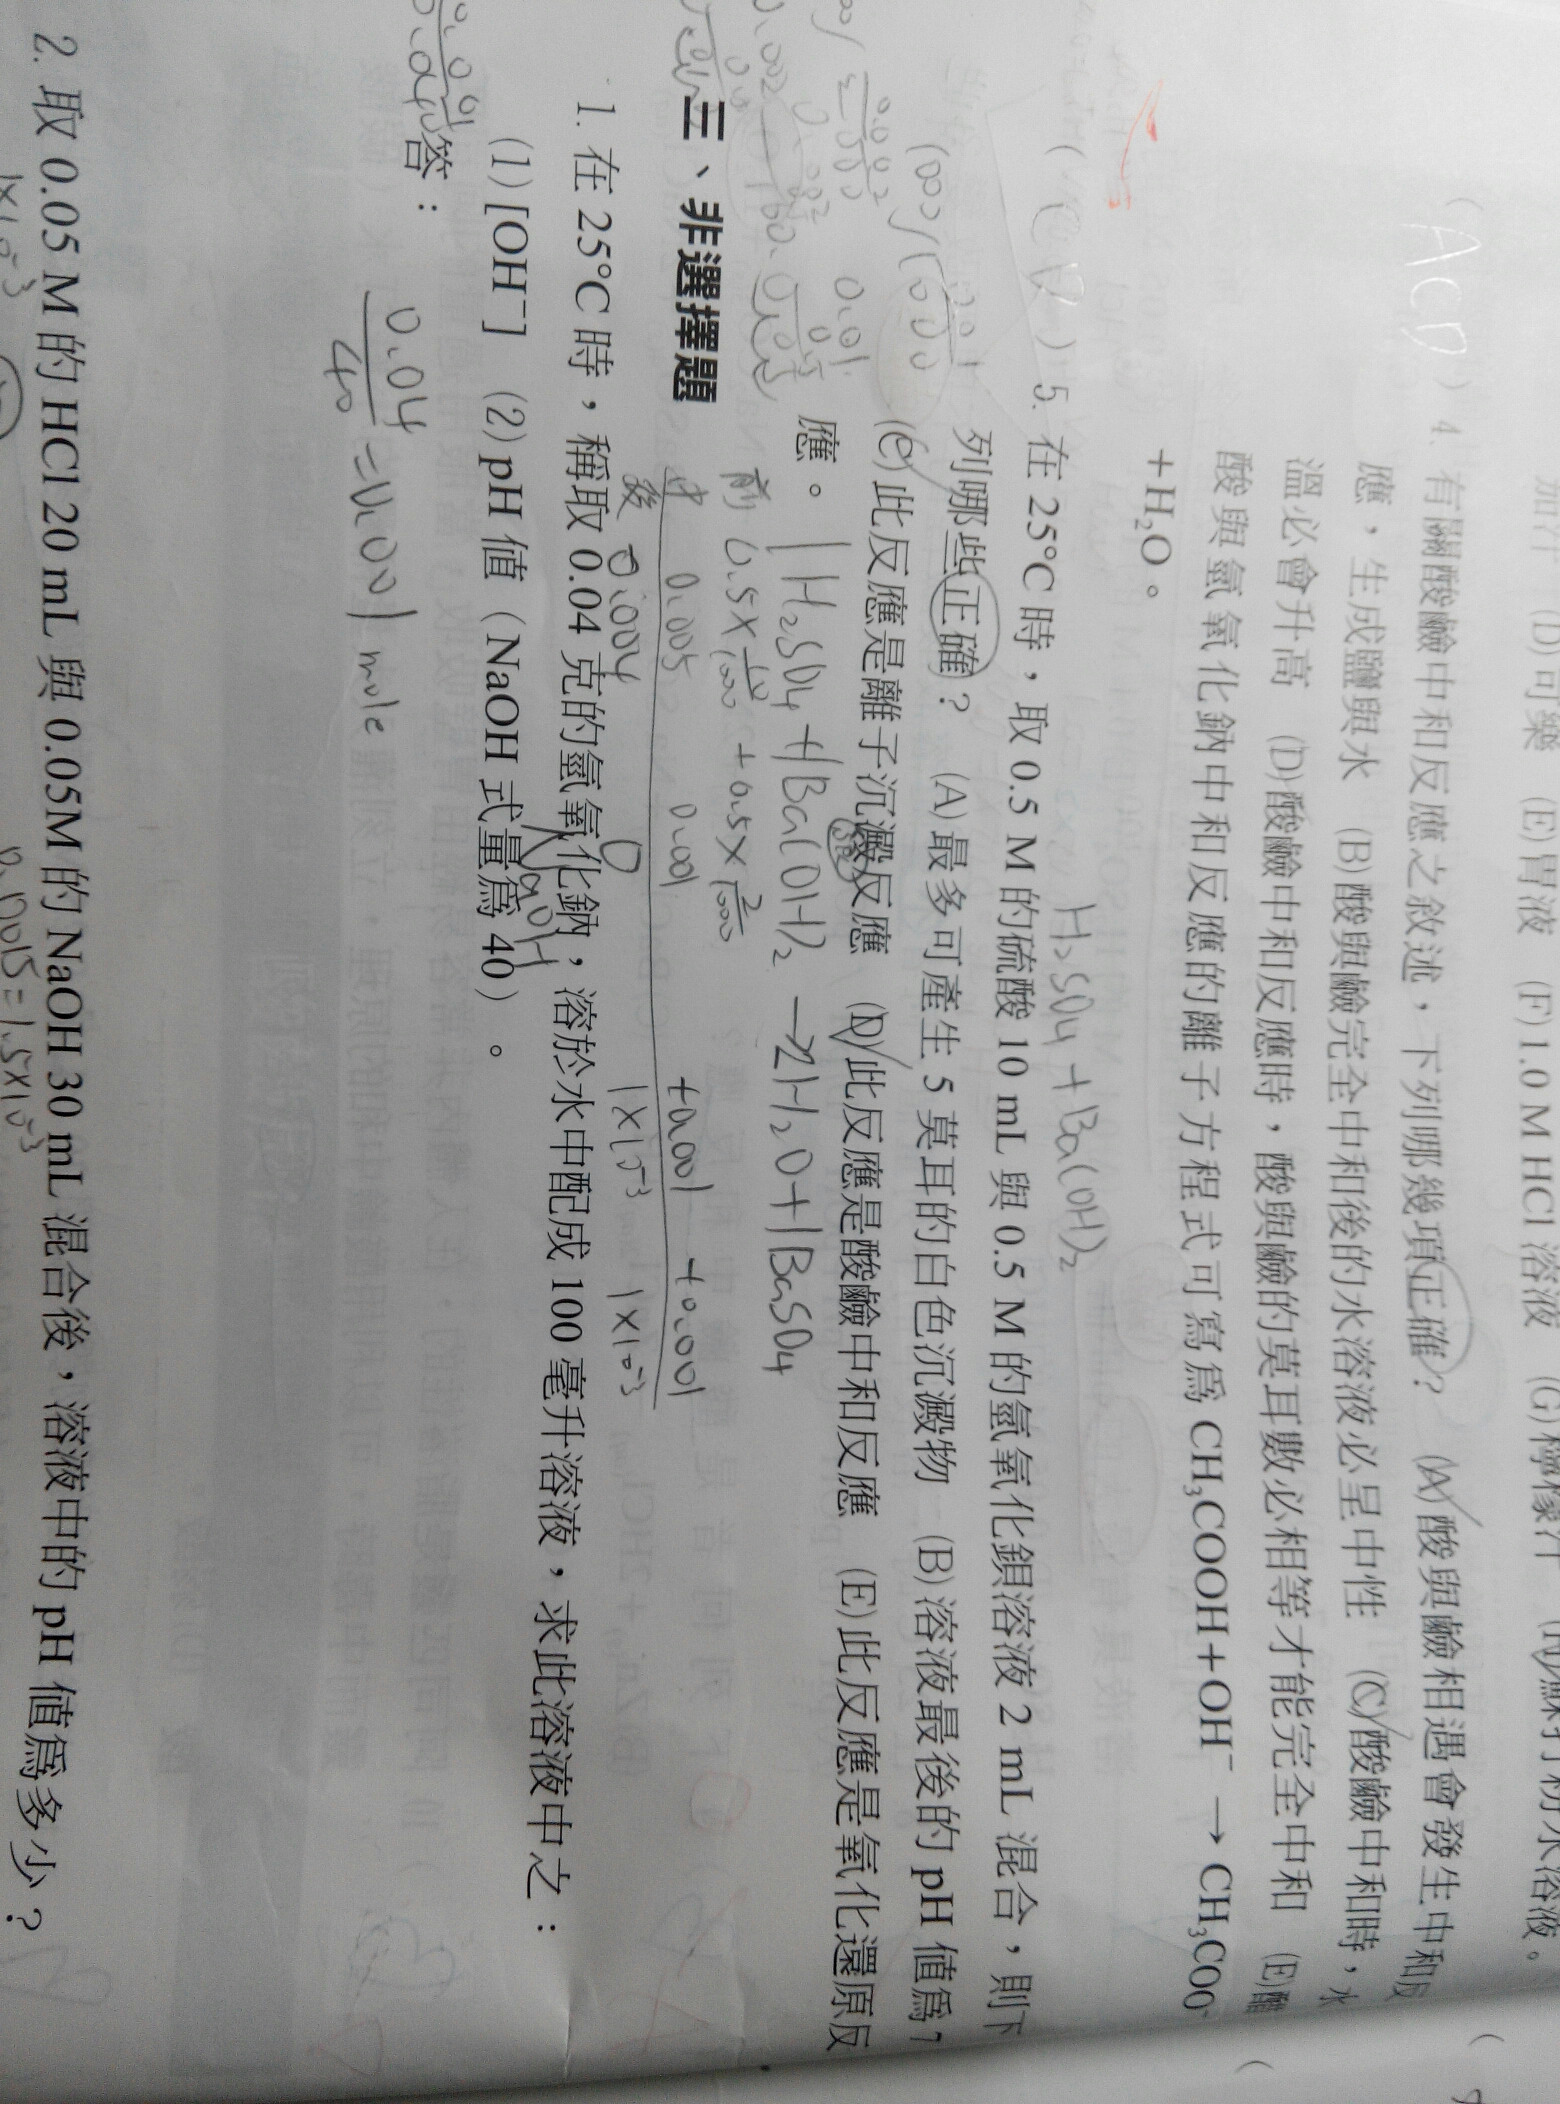 加汁 (D)可樂 (E)胃液 (F)1.0 M HCl 溶液 (G)檸檬汁
(ACD) 4. 有關酸鹼中和反應之敘述，下列哪幾項正確？ (A)酸與鹼相遇會發生中和反
應，生成鹽與水 (B)酸與鹼完全中和後的水溶液必呈中性 (C)酸鹼中和時，水
溫必會升高 (D)酸鹼中和反應時，酸與鹼的莫耳數必相等才能完全中和 (E)醋
酸與氫氧化鈉中和反應的離子方程式可寫為 CH₃COOH+OH⁻ → CH₃COO⁻
+H₂O。
H₂SO₄ + Ba(OH)₂
(CD) 5. 在 25°C 時，取 0.5 M 的硫酸 10 mL 與 0.5 M 的氫氧化鋇溶液 2 mL 混合，則下
列哪些正確？ (A)最多可產生 5 莫耳的白色沉澱物 (B)溶液最後的 pH 值為 7
(C)此反應是離子沉澱反應 (D)此反應是酸鹼中和反應 (E)此反應是氧化還原反
應。
1H₂SO₄ + 1Ba(OH)₂ → 2H₂O + 1BaSO₄
前 0.5×10/1000 + 0.5×2/1000
中 0.005 0.001 +0.001 +0.001
後 0.004 0 1×10⁻³ 1×10⁻³
三、非選擇題
1. 在 25°C 時，稱取 0.04 克的氫氧化鈉，溶於水中配成 100 毫升溶液，求此溶液中之：
NaOH
(1) [OH⁻] (2) pH 值（NaOH 式量為 40）。
答：
0.04/40 = 0.001 mole
2. 取 0.05 M 的 HCl 20 mL 與 0.05M 的 NaOH 30 mL 混合後，溶液中的 pH 值為多少？
1×10⁻³ 0.0015 = 1.5×10⁻³